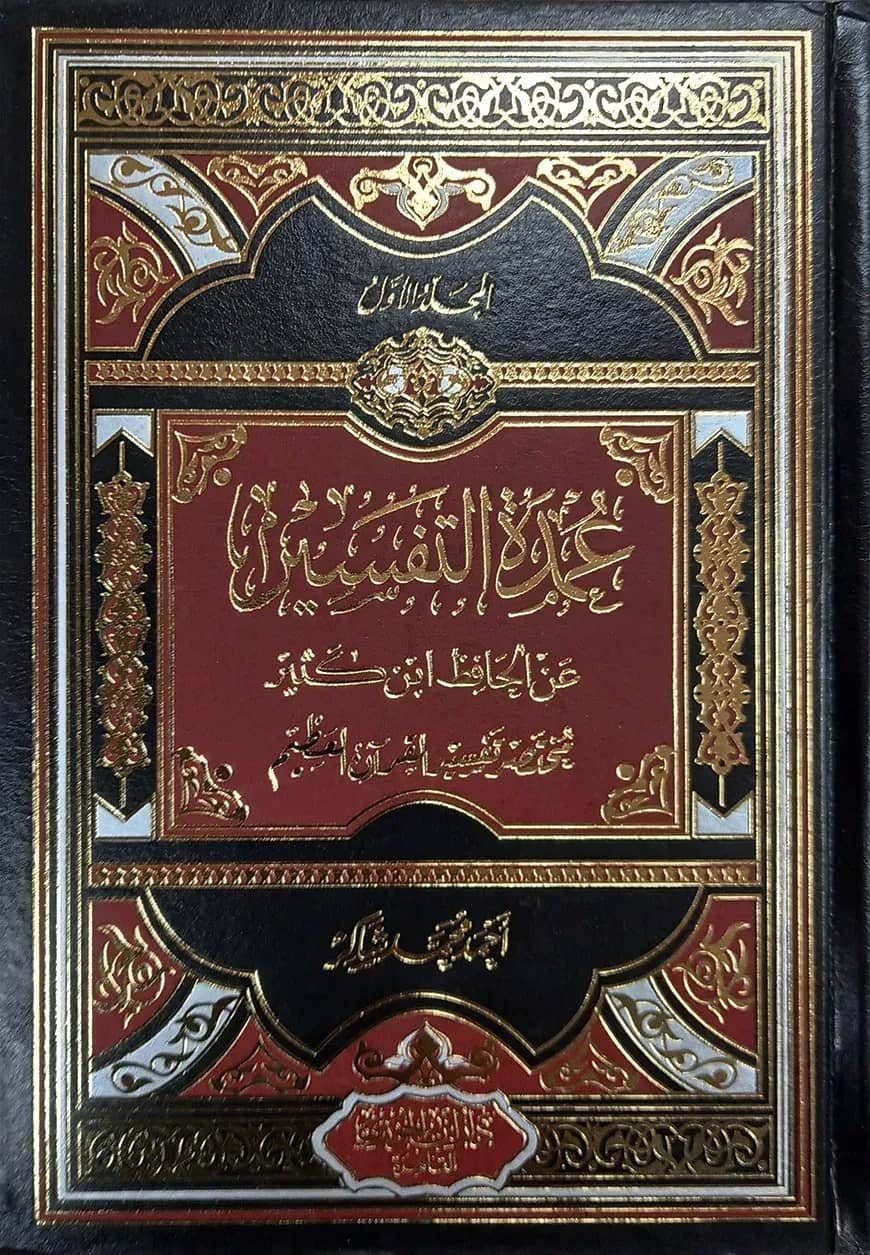 المجلد الأول
عُمْدَةُ التَّفْسِيْرِ
عَنْ الحَافِظِ ابْن كَثِيْرٍ
مُختَصَر تَفسِير القُرآن العَظِيْم
أحمَد محمَّد شَاكِر
القاهرة